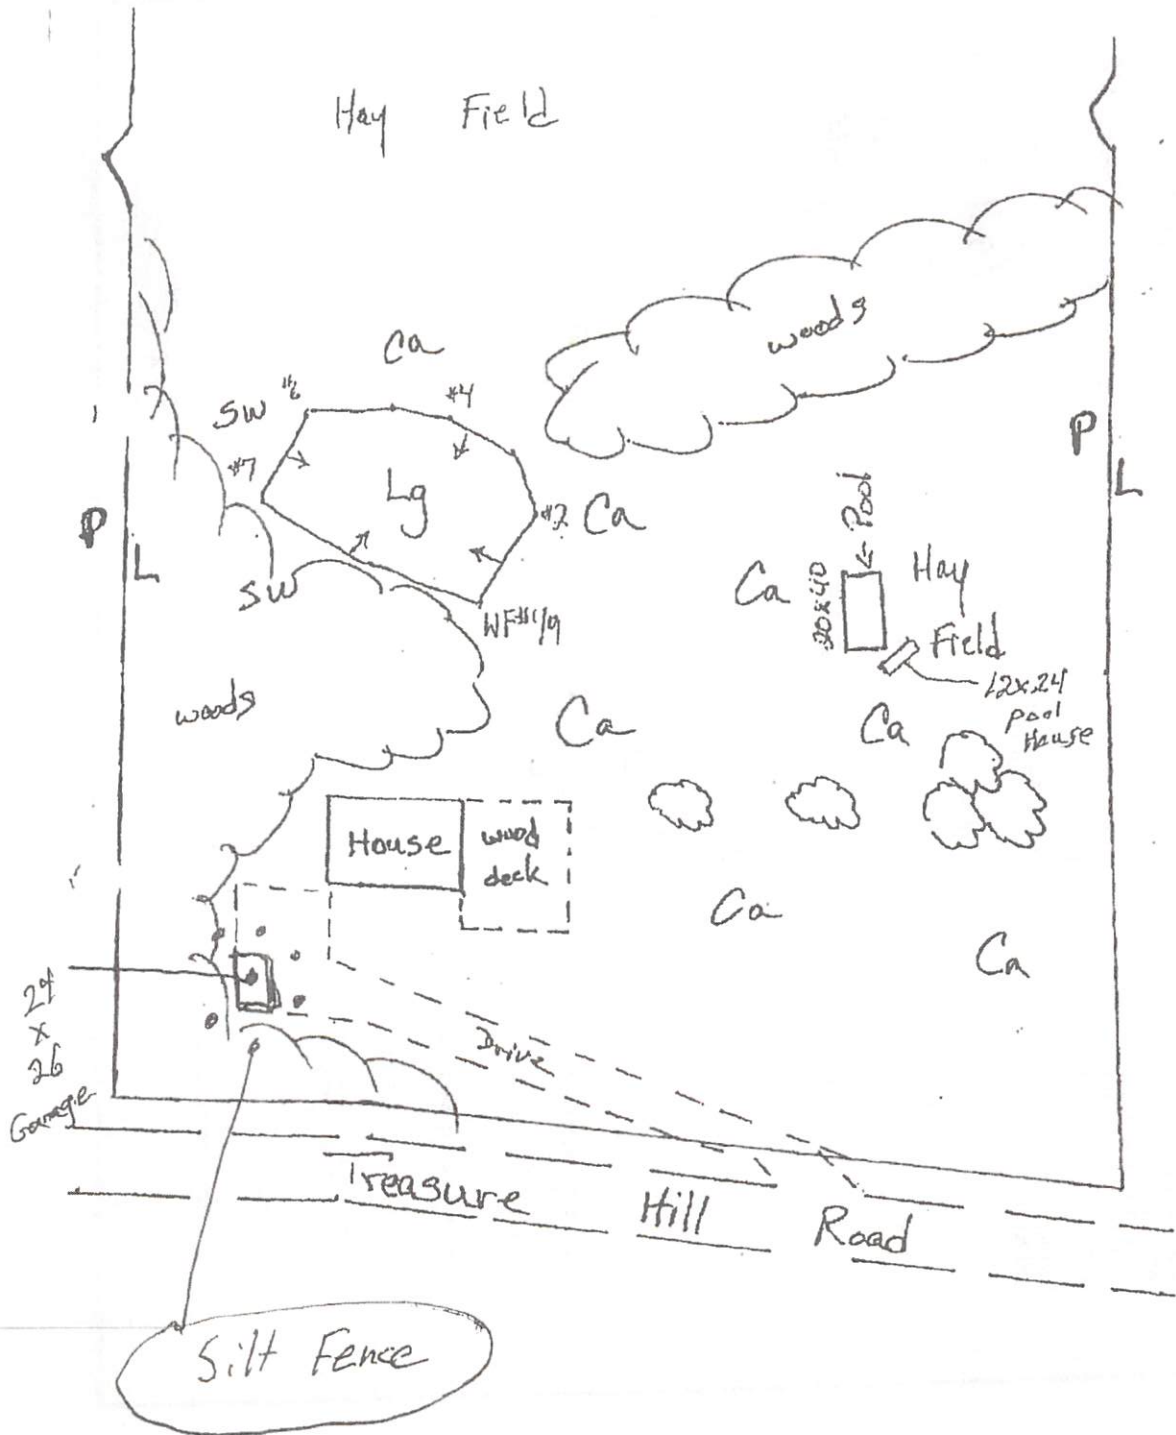 Hay Field
woods
Ca
SW #6
#4
#7
Lg
#2 Ca
P L
P L
SW
WF#1/9
Ca
20x40
← Pool
Hay
Field
12x24
pool
House
woods
Ca
Ca
House
wood
deck
Ca
Ca
24
x
26
Garage
Drive
Treasure Hill Road
Silt Fence